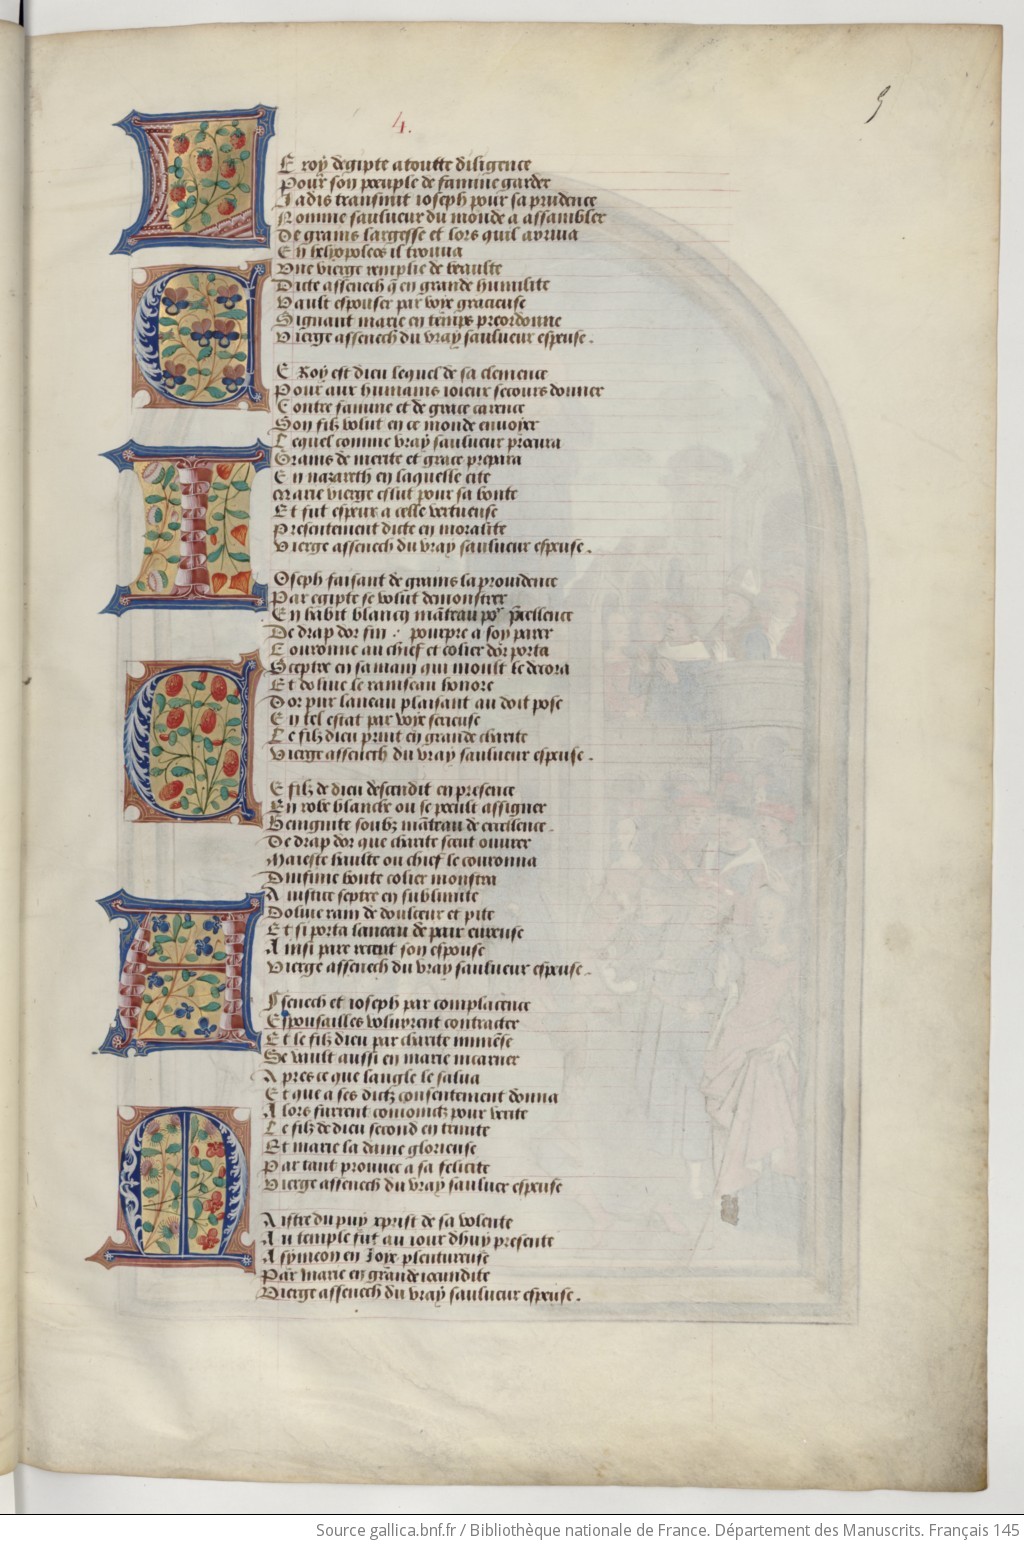 4.
5
LE roy degipte a toutte diligence
Pour son peuple de famine garder
Jadis transmit ioseph pour sa prudence
Nomme saulueur du monde a assambler
De grains largesse et lors quil arriua
En helyopoleos il trouua
Vne vierge remplie de beaulte
Dicte assenech q̃ en grande humilite
Vault espouser par voye gracieuse
Signant marie en temps preordonne
Vierge assenech du vray saulueur espeuse.
CE Roy est dieu lequel de sa clemence
Pour aux humains ioieux secours donner
Contre famine et de grace carence
Son filz volut en ce monde enuoyer
Lequel comme vray saulueur procura
Grains de merite et grace prepara
En nazareth en laquelle cite
Marie vierge eslut pour sa bonte
Et fut espeux a celle vertueuse
Presentement dicte en moralite
Vierge assenech du vray saulueur espeuse.
IOseph faisant de grains la prouidence
Par egipte se volut demonstrer
En habit blancq mãteau po^r p̃cellence
De drap dor fin pourpre a son parer
Couronne au chief et colier dor porta
Sceptre en sa main qui moult le decora
Et doliue le rainseau honore
Dor pur laneau plaisant au doit pose
En tel estat par voye serieuse
Le filz dieu print en grande charite
Vierge assenech du vray saulueur espeuse.
CE filz de dieu descendit en presence
En robe blanche ou se peult assigner
Benignite soubz mãteau de excellence
De drap dor que charite sceut ouurer
Maieste haulte ou chief le couronna
Diuisine bonte colier monstra
A iustice septre en sublimite
Doliue raim de doulceur et pite
Et si porta laneau de paix eureuse
Ainsi pare receut son espouse
Vierge assenech du vray saulueur espeuse.
ASsenech et ioseph par complacence
Espousailles voluyrent contracter
Et le filz dieu par charite immẽse
Se vault aussi en marie incarner
Apres ce que langle le salua
Et que a ses dictz consentement donna
Alors furrent conioinctz pour verite
Le filz de dieu second en trinite
Et marie la dame glorieuse
Par tant prouuee a sa felicite
Vierge assenech du vray saulueur espeuse
MAistre du puy xprist de sa volente
Au temple fut au iour dhuy presente
A symeon en Joye plentureuse
Par marie en grande iocundite
Vierge assenech du vray saulueur espeuse.
Source gallica.bnf.fr / Bibliothèque nationale de France. Département des Manuscrits. Français 145